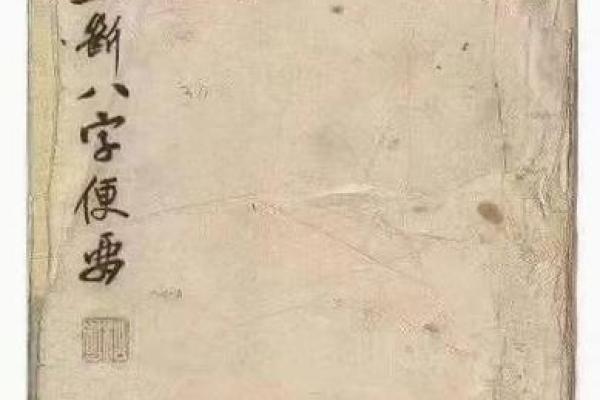 斷八字便要